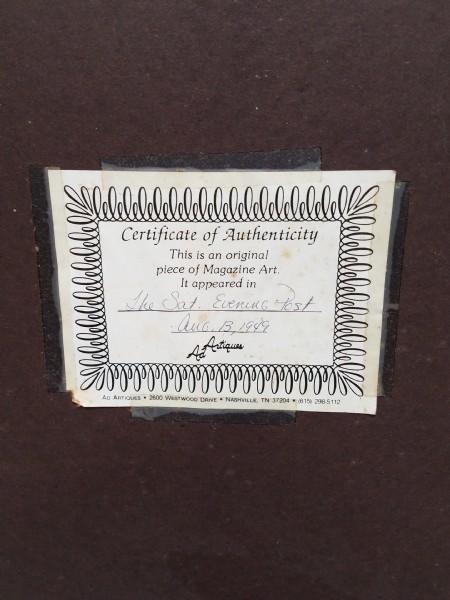 Certificate of Authenticity
This is an original
piece of Magazine Art.
It appeared in
The Sat. Evening Post
Aug. 13, 1949
Ad Antiques
AD ANTIQUES • 2600 WESTWOOD DRIVE • NASHVILLE, TN 37204 • (615) 298-5112